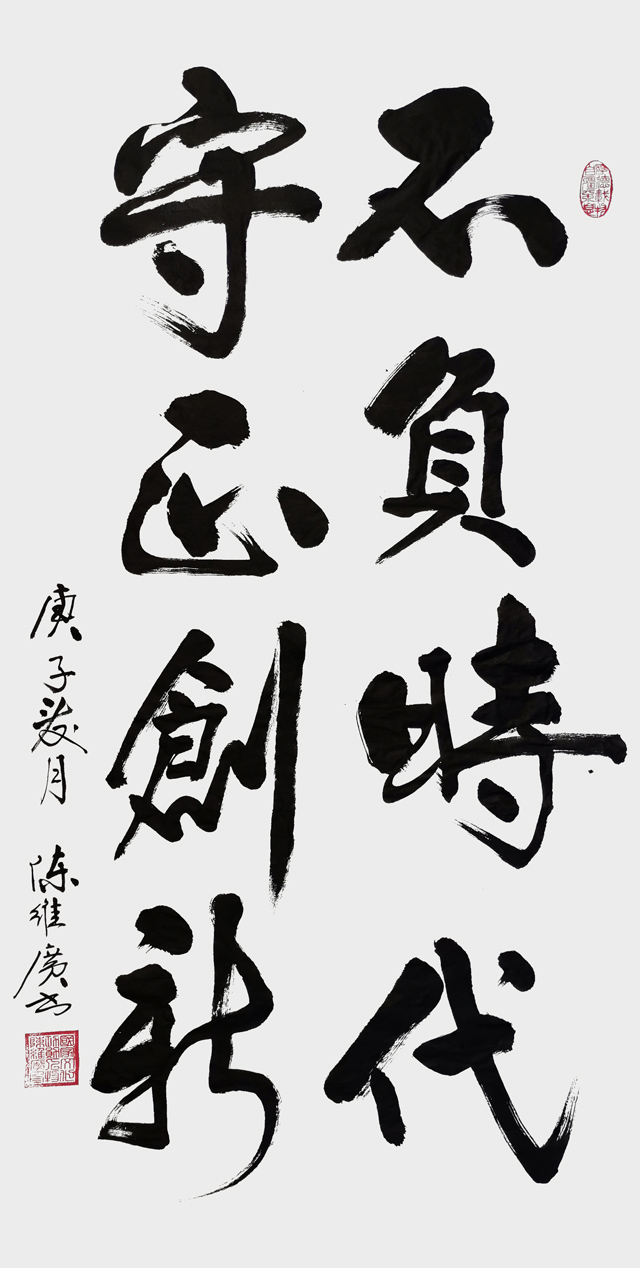 不負時代
守正創新
庚子葭月 陈維廣书